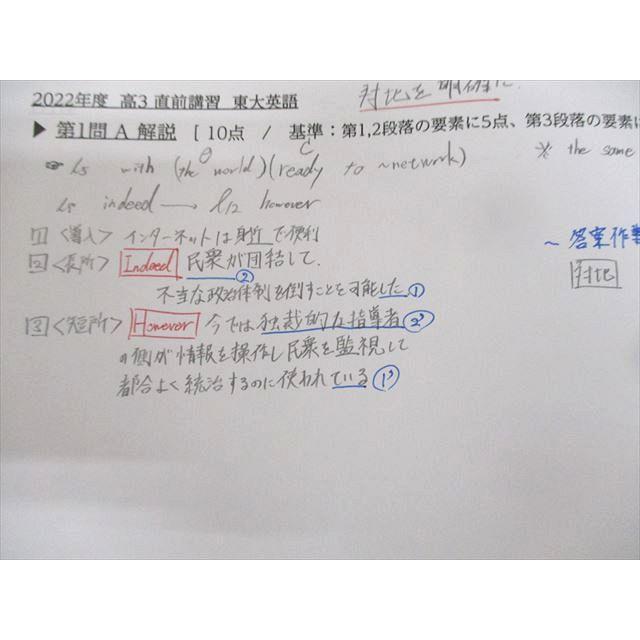 対比を明確に.
2022年度 高3 直前講習 東大英語
▶ 第1問 A 解説 [ 10点 / 基準：第1,2段落の要素に5点、第3段落の要素に
☞ l5 with (the world)(ready to ~network) ※ the same
O C
l5 indeed → l12 however
1 <導入> インターネットは身近で便利
~ 答案作業
2 <長所> Indeed 民衆が団結して.
②
対比
不当な政治体制を倒すことを可能した ①
3 <短所> However 今では独裁的な指導者 ②'
の側が情報を操作し民衆を監視して
都合よく統治するのに使われている ①'